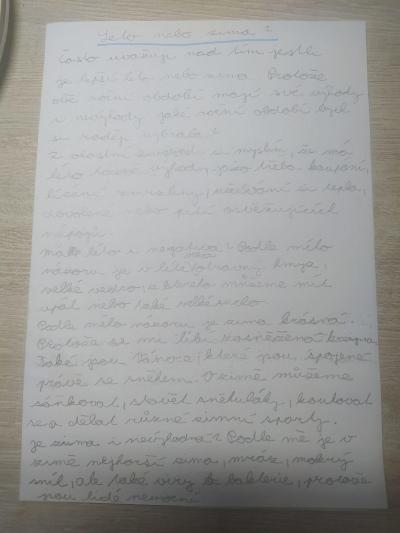 Léto nebo zima?
Často uvažuji nad tím jestli
je lepší léto nebo zima. Protože
obě roční období mají své výhody
i nevýhody jaké roční období bych
si raději vybrala?
Z vlastní si myslím, že má
léto výhody, jako třeba koupání,
lízání zmrzliny, užívání si tepla,
dovolené nebo pití osvěžujících
nápojů.
Má léto i negativa? Podle mého
názoru je v létě otravný hmyz,
velké vedro, z kterého můžeme mít
úpal nebo také velké sucho.
Podle mého názoru je zima krásná.
Protože se mi líbí zasněžená krajina
Také jsou Vánoce, které jsou spojené
právě se sněhem. V zimě můžeme
sáňkovat, stavět sněhuláky, koulovat
se a dělat různé zimní sporty.
Je zima i nevýhodná? Podle mě je v
zimě nejhorší zima, mráz, mokrý
sníh, ale také viry a bakterie, protože
jsou lidé nemocní